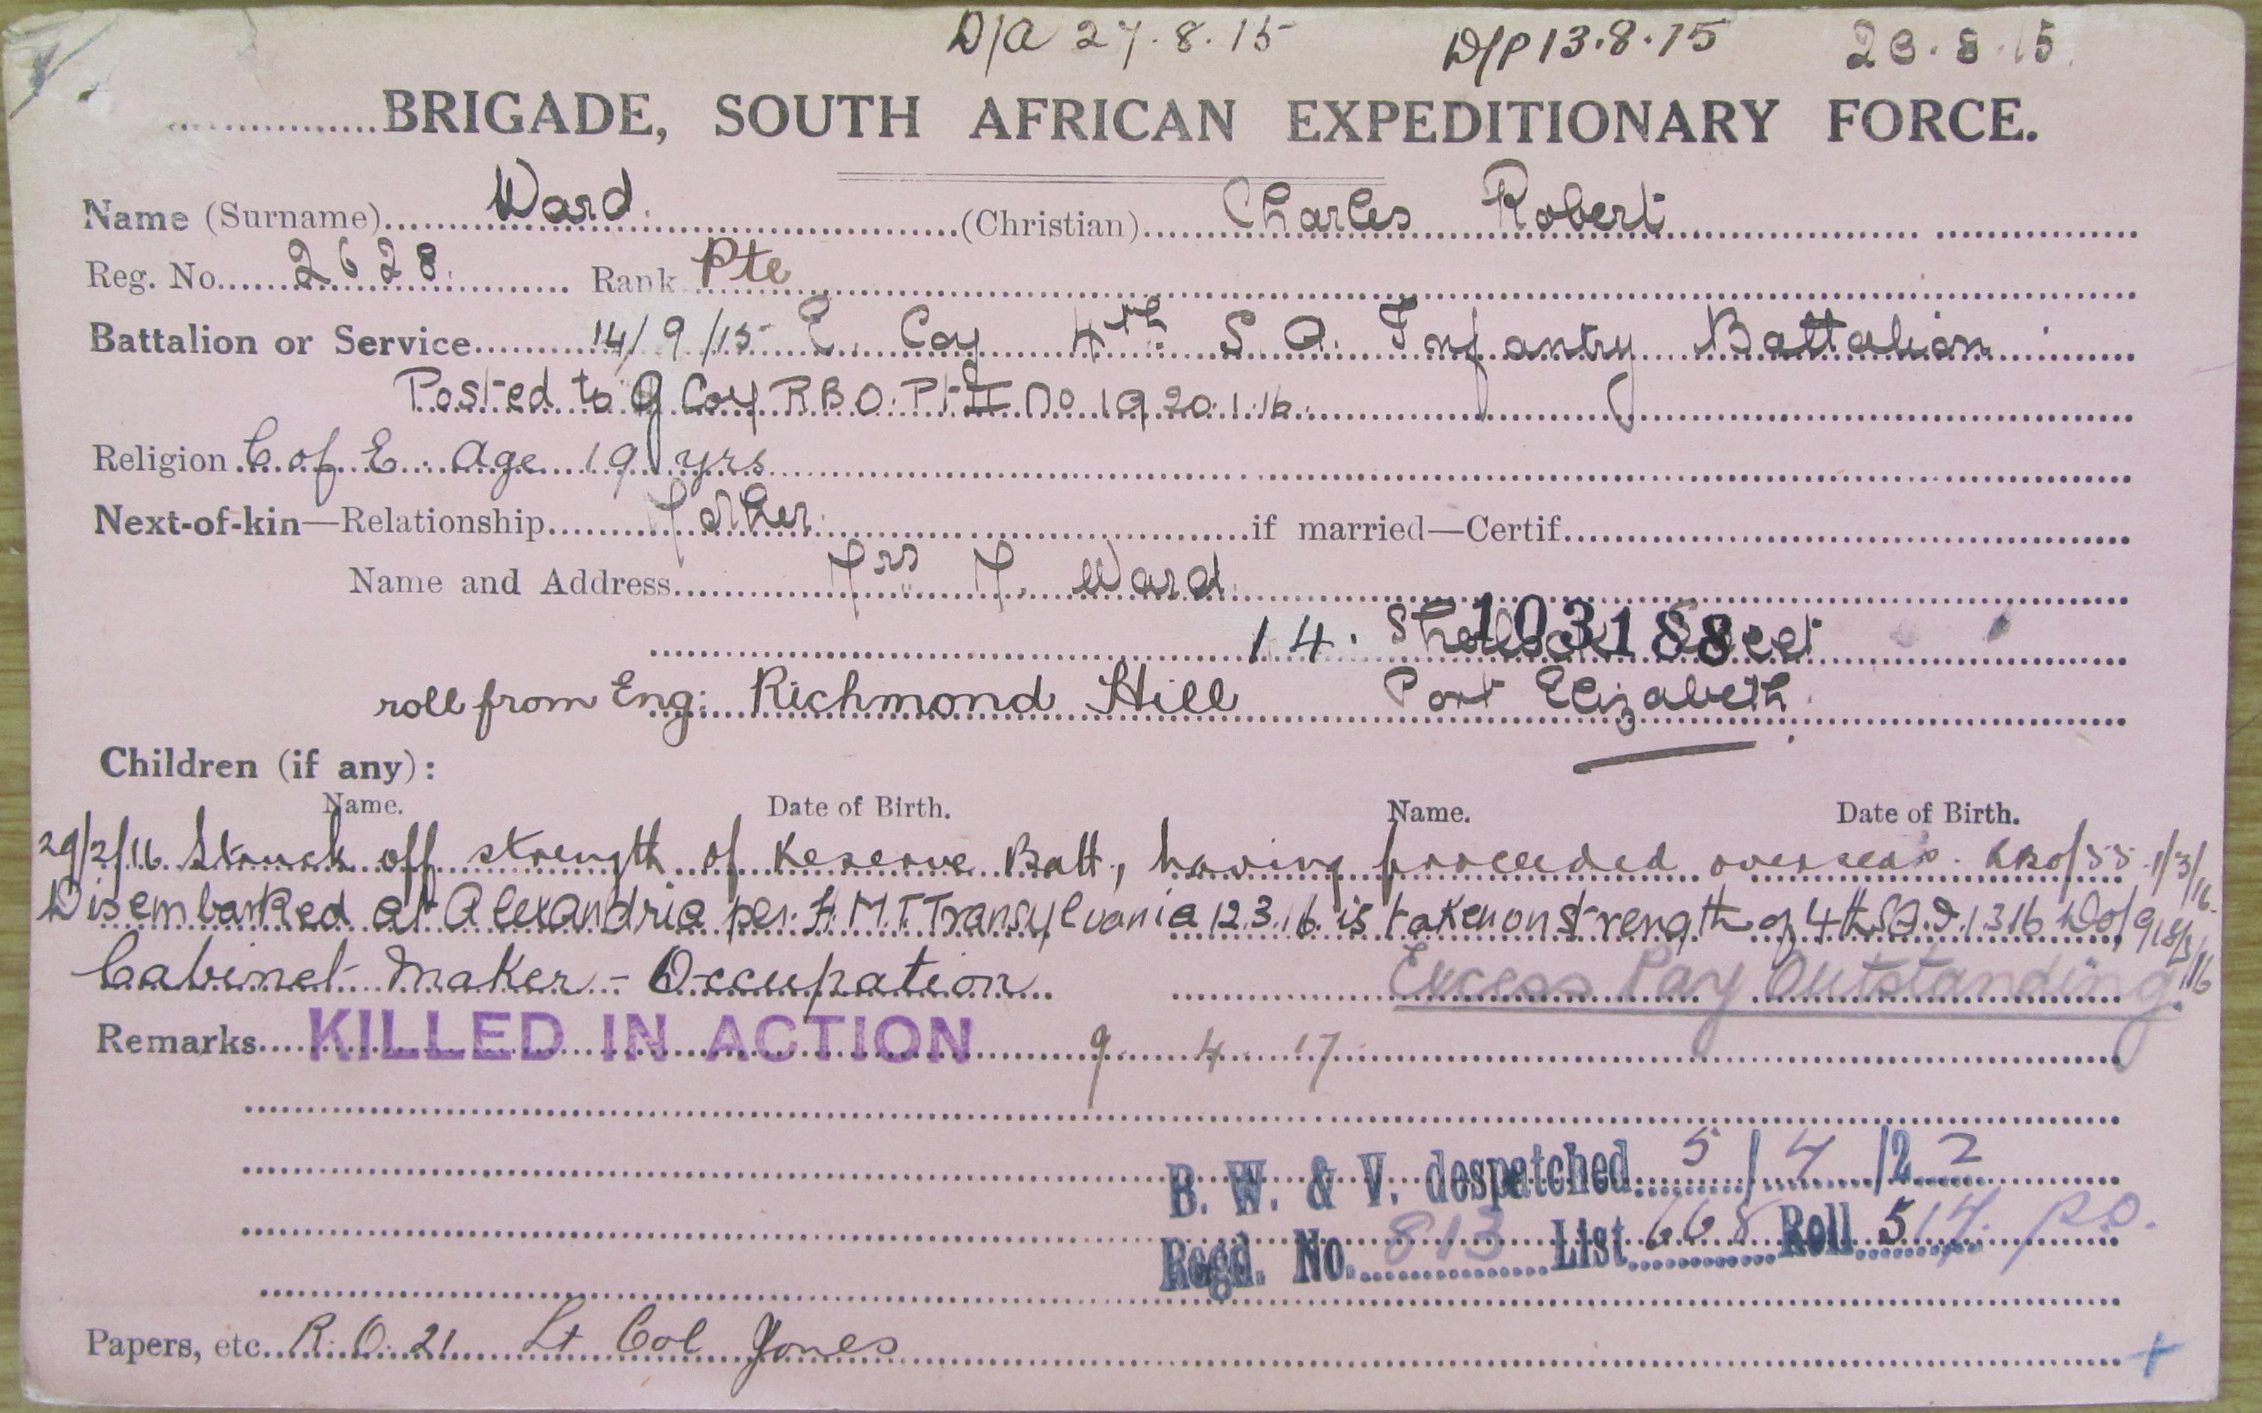 D/A 27.8.15 D/P 13.8.15 28.8.15.
BRIGADE, SOUTH AFRICAN EXPEDITIONARY FORCE.
Name (Surname) Ward. (Christian) Charles Robert
Reg. No. 2628. Rank Pte
Battalion or Service 14/9/15 E. Coy 4th S. A. Infantry Battalion
Posted to G Coy R.B.O. Pt II No 19 20.1.16.
Religion C of E. Age 19 yrs
Next-of-kin—Relationship Mother. if married—Certif.
Name and Address Mrs M. Ward.
14. 103188 Street
roll from Eng: Richmond Hill Port Elizabeth.
Children (if any):
Name. Date of Birth. Name. Date of Birth.
29/2/16 Struck off strength of Reserve Batt, having proceeded overseas. RBO/55 1/3/16.
Disembarked at Alexandria per H.M.T. Transylvania 12.3.16. is taken on strength of 4th S.A.I. 1.3.16 DO/9 18/3/16
Cabinet Maker - Occupation Excess Pay Outstanding.
Remarks KILLED IN ACTION 9 4 17
B. W. & V. despatched 5/4/22
Regd. No. 813 List 668 Roll 514. P.O.
Papers, etc. R.O. 21 Lt Col Jones